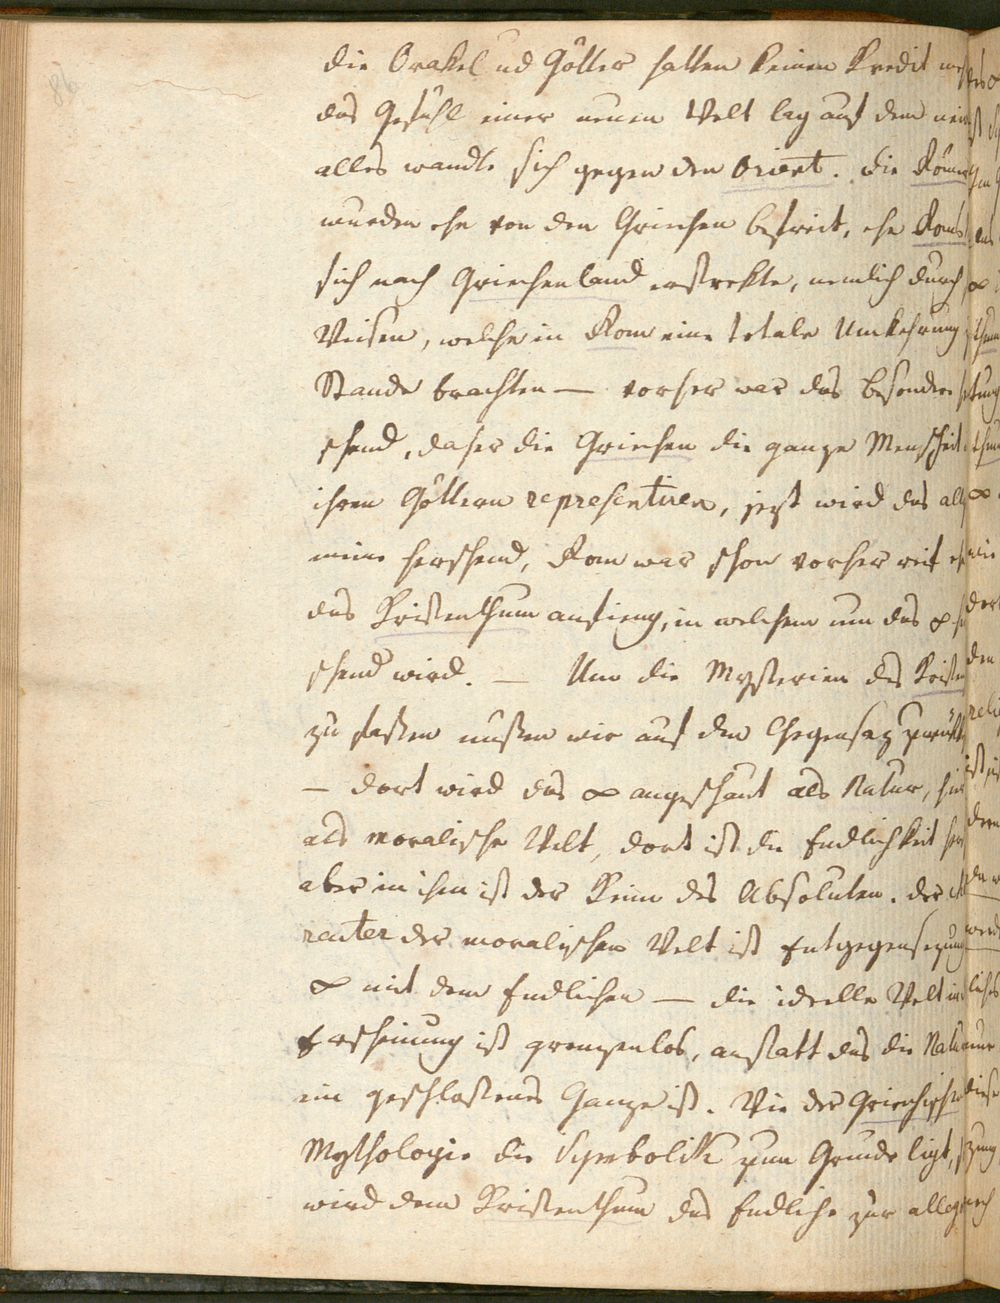 86
die Orakel und Götter hatten keinen Kredit
das Gefühl einer neuen Welt lag auf dem
alles wandte sich gegen den Orient. die Römer
wurden ehe von den Griechen befreit, ehe Roms
sich nach Griechenland erstrekte, nemlich durch
Weisen, welche in Rom eine totale Umkehrung
Stande brachten — vorher war das besondere
schend, daher die Griechen die ganze Menschheit
ihren Göttern representiren, jezt wird das all
meine herschend, Rom war schon vorher reif
das Kristenthum anfieng, in welchem nun das ∞
schend wird. — Um die Mysterien des Kristen
zu fassen müssen wir auf den Gegensaz zurük
— dort wird das ∞ angeschaut als Natur, hier
als moralische Welt, dort ist die Endlichkeit
aber in ihm ist der Keim des Absoluten. der
racter der moralischen Welt ist Entgegensezung
∞ mit dem Endlichen — die ideelle Welt in
Erscheinung ist grenzenlos, anstatt das die Natur
ein geschlossenes Ganze ist. Wie der Griechischen
Mythologie die Symbolik zum Grunde ligt,
wird dem Kristenthum das Endliche zur alleg